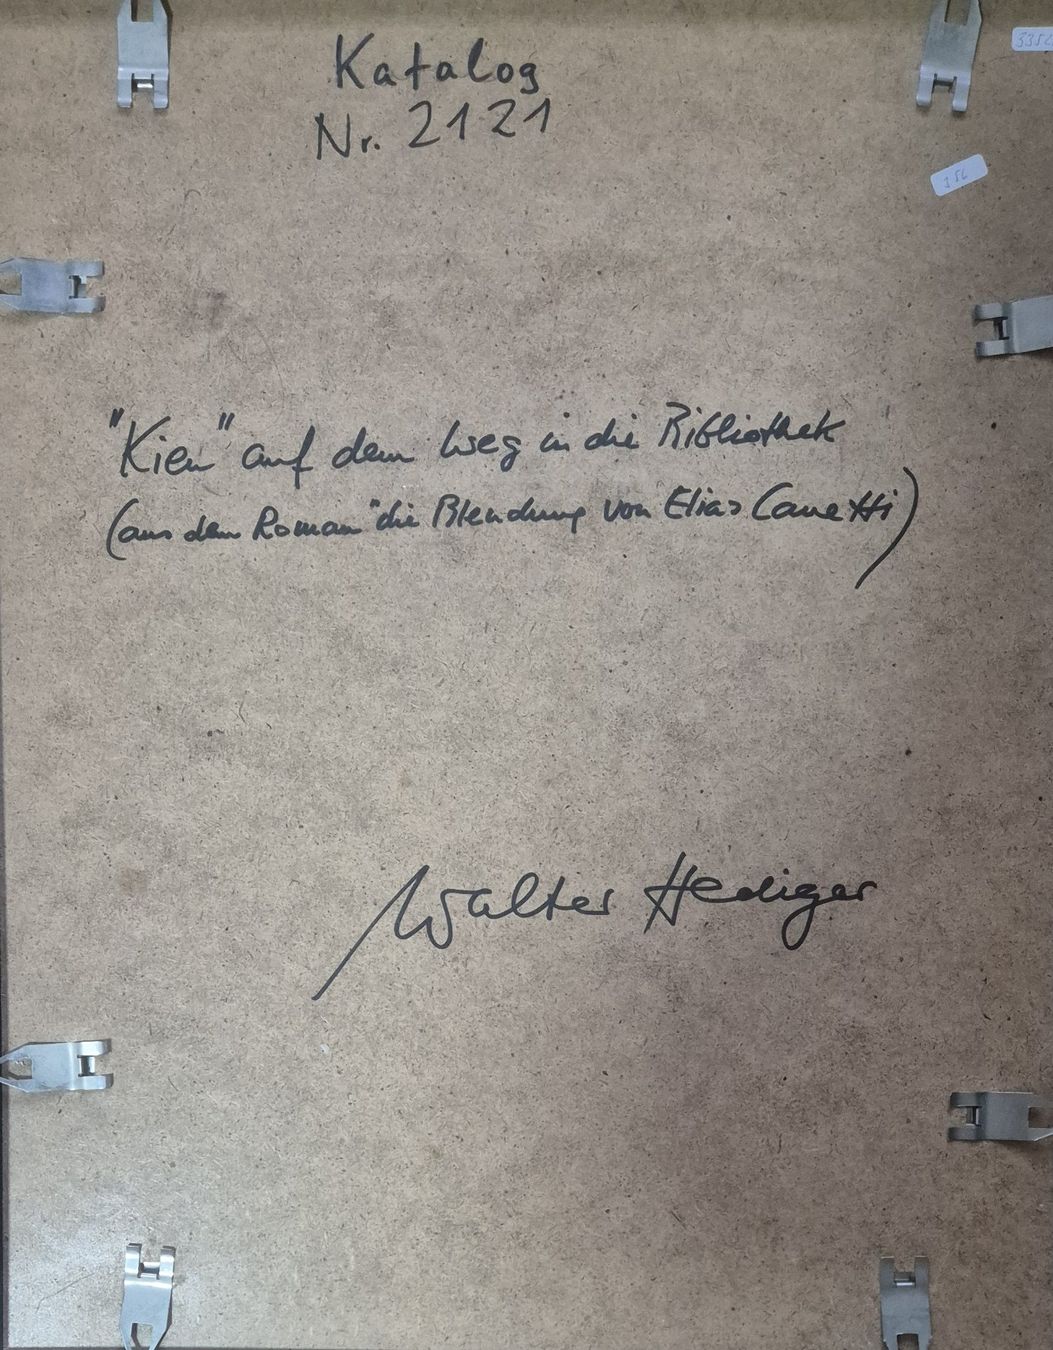 Katalog
Nr. 2121
"Kien" auf dem Weg in die Bibliothek
(aus dem Roman "die Blendung von Elias Canetti)
Walter Hediger